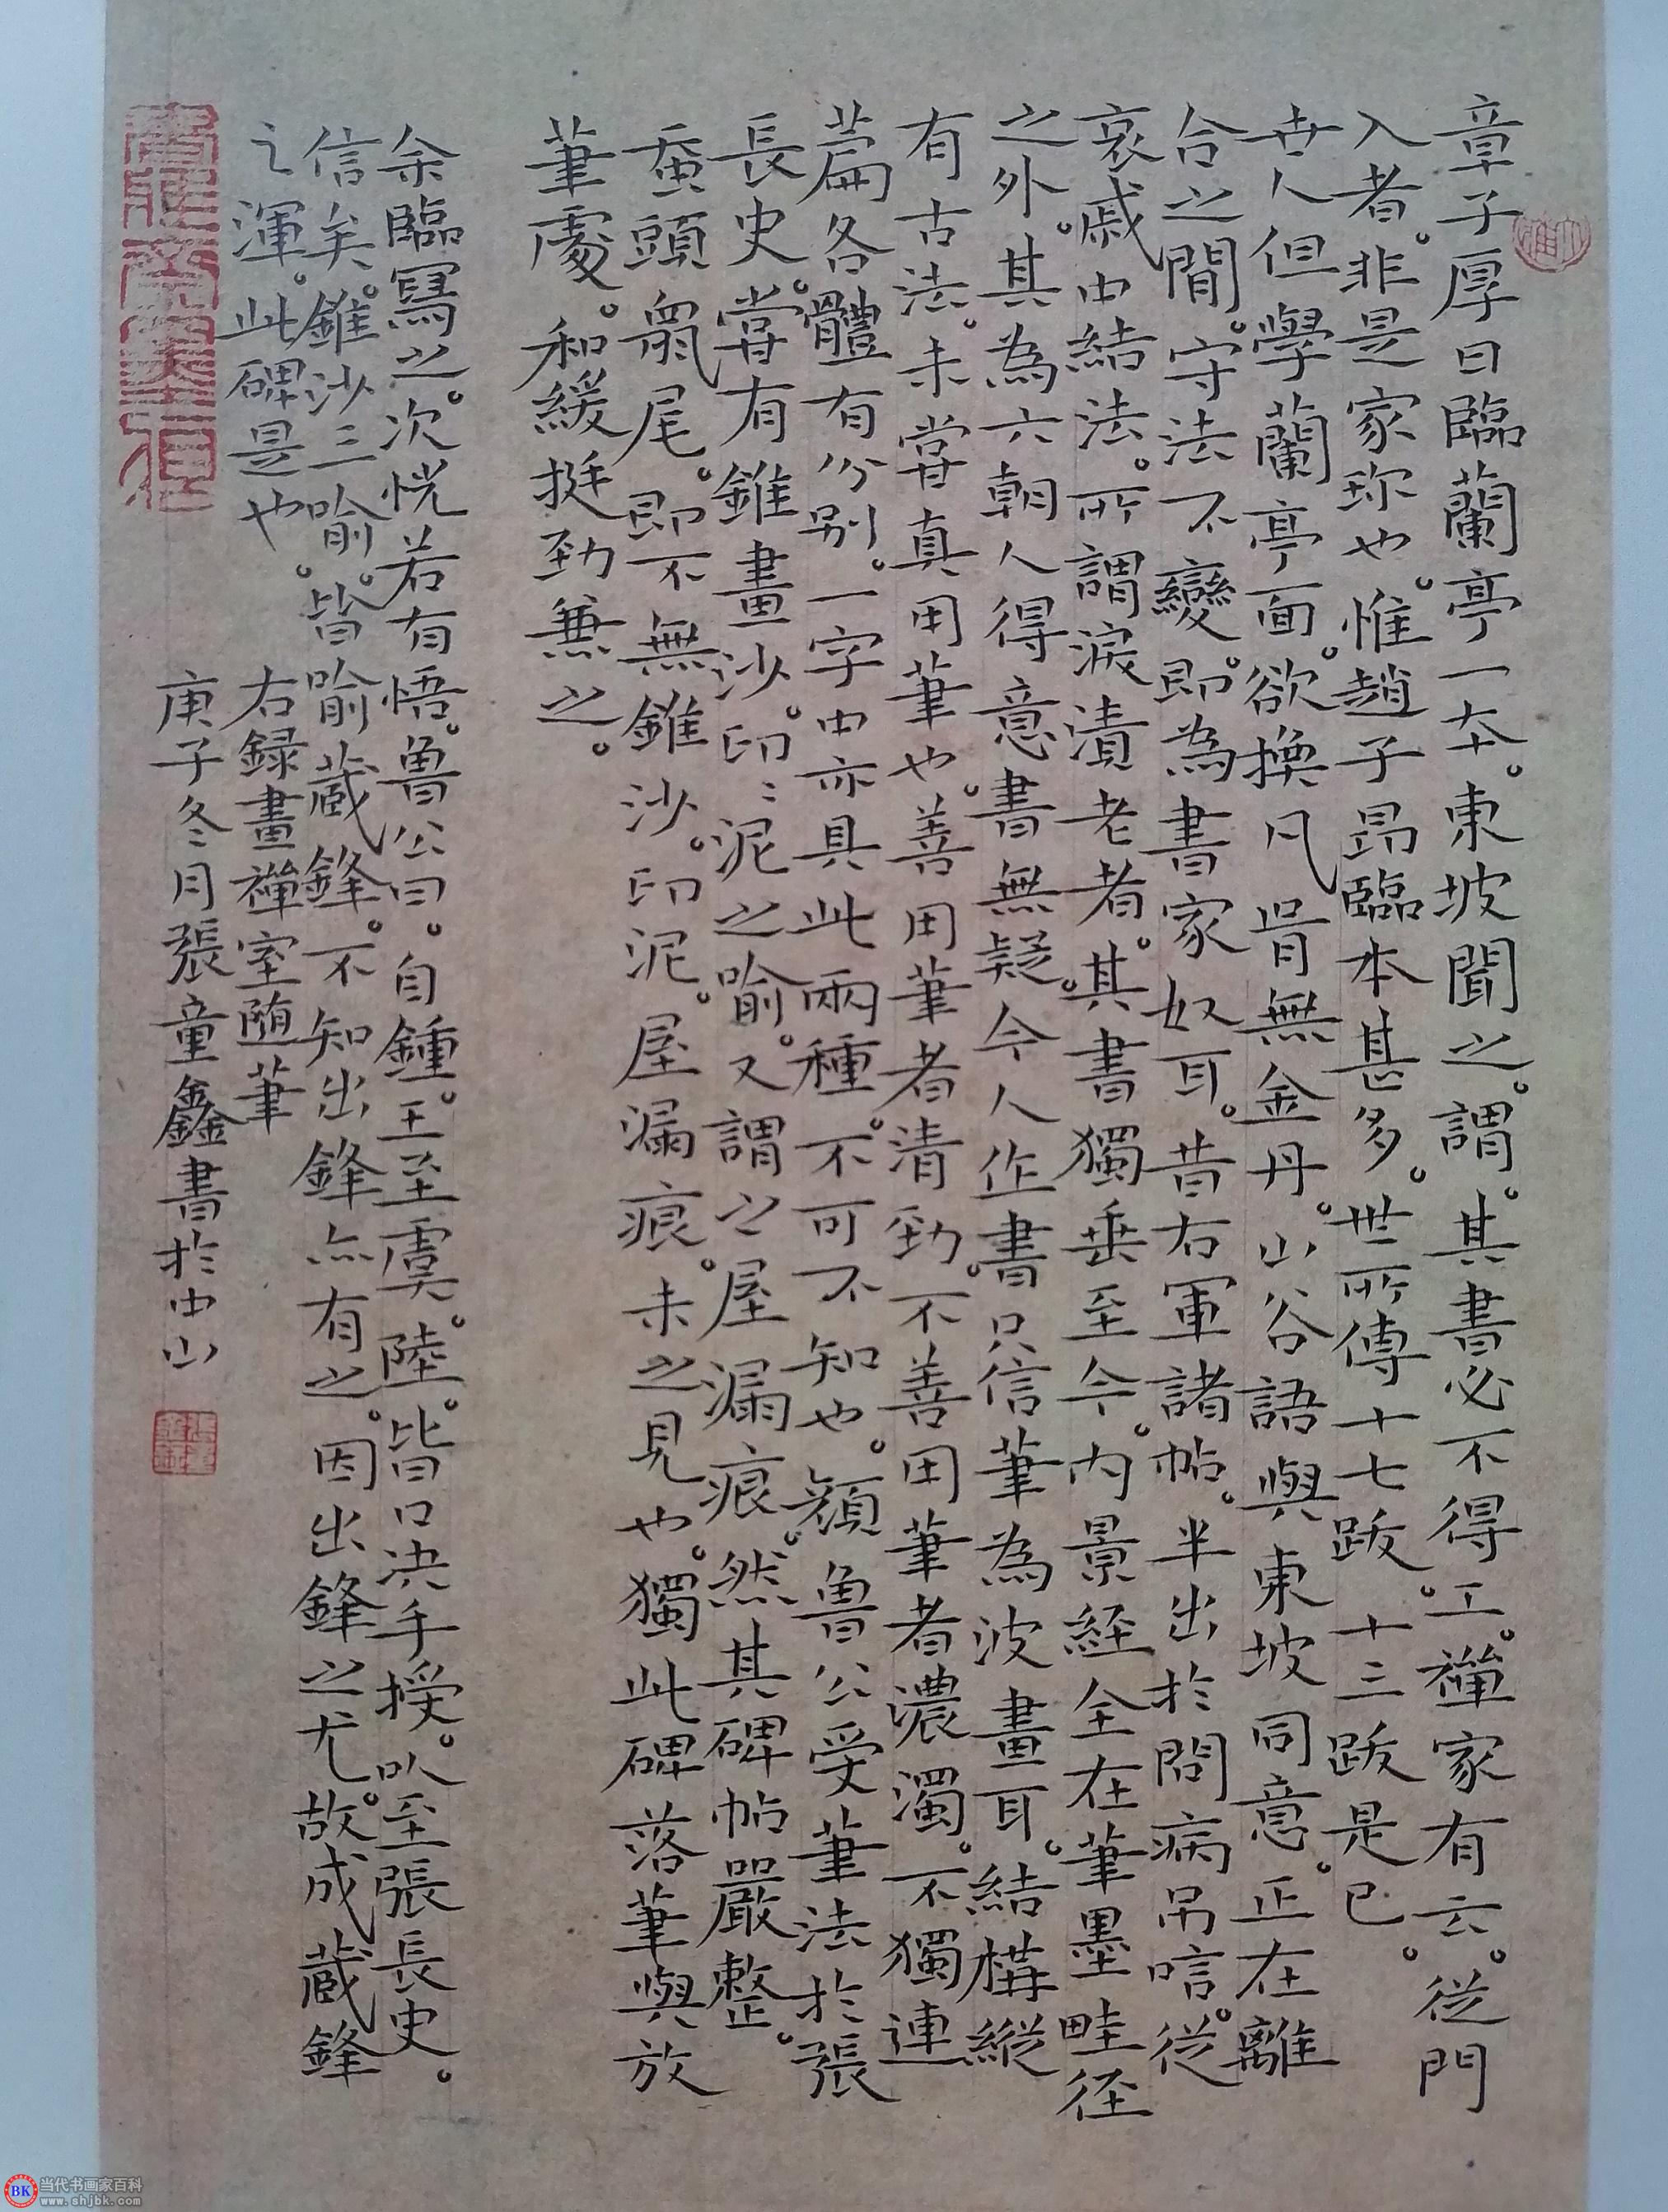 章子厚日臨蘭亭一本。東坡聞之。謂。其書必不得工。禪家有云。從門
入者。非是家珎也。惟趙子昂臨本甚多。世所傳十七跋。十三跋是已。
世人但學蘭亭面。欲換凡骨無金丹。山谷語與東坡同意。正在離
合之間。守法不變。即為書家奴耳。昔右軍諸帖。半出於問病吊唁。從
哀戚中結法。所謂淚漬老者。其書獨垂至今。内景経全在筆墨畦径
之外。其為六朝人得意書無疑。今人作書只信筆為波畫耳。結構縦
有古法。未甞真用筆也。善用筆者清勁。不善用筆者濃濁。不獨連
篇各體有分别。一字中亦具此兩種。不可不知也。顔魯公受筆法於張
長史。甞有錐畫沙。印印泥之喻。又謂之屋漏痕。然其碑帖嚴整。
蚕頭鼠尾。即不無錐沙。印泥。屋漏痕。未之見也。獨此碑落筆與放
筆處。和緩挺勁兼之。
余臨寫之。次恍若有悟。魯公曰。自鍾。王至虞。陸。皆口决手授。以至張長史。
信矣。錐沙三喻。皆喻蔵鋒。不知出鋒亦有之。因出鋒之尤。故成蔵鋒
之渾。此碑是也。
右録畫禪室随筆
庚子冬月張童鑫書於中山
BK 当代书画家百科
www.shjbk.com